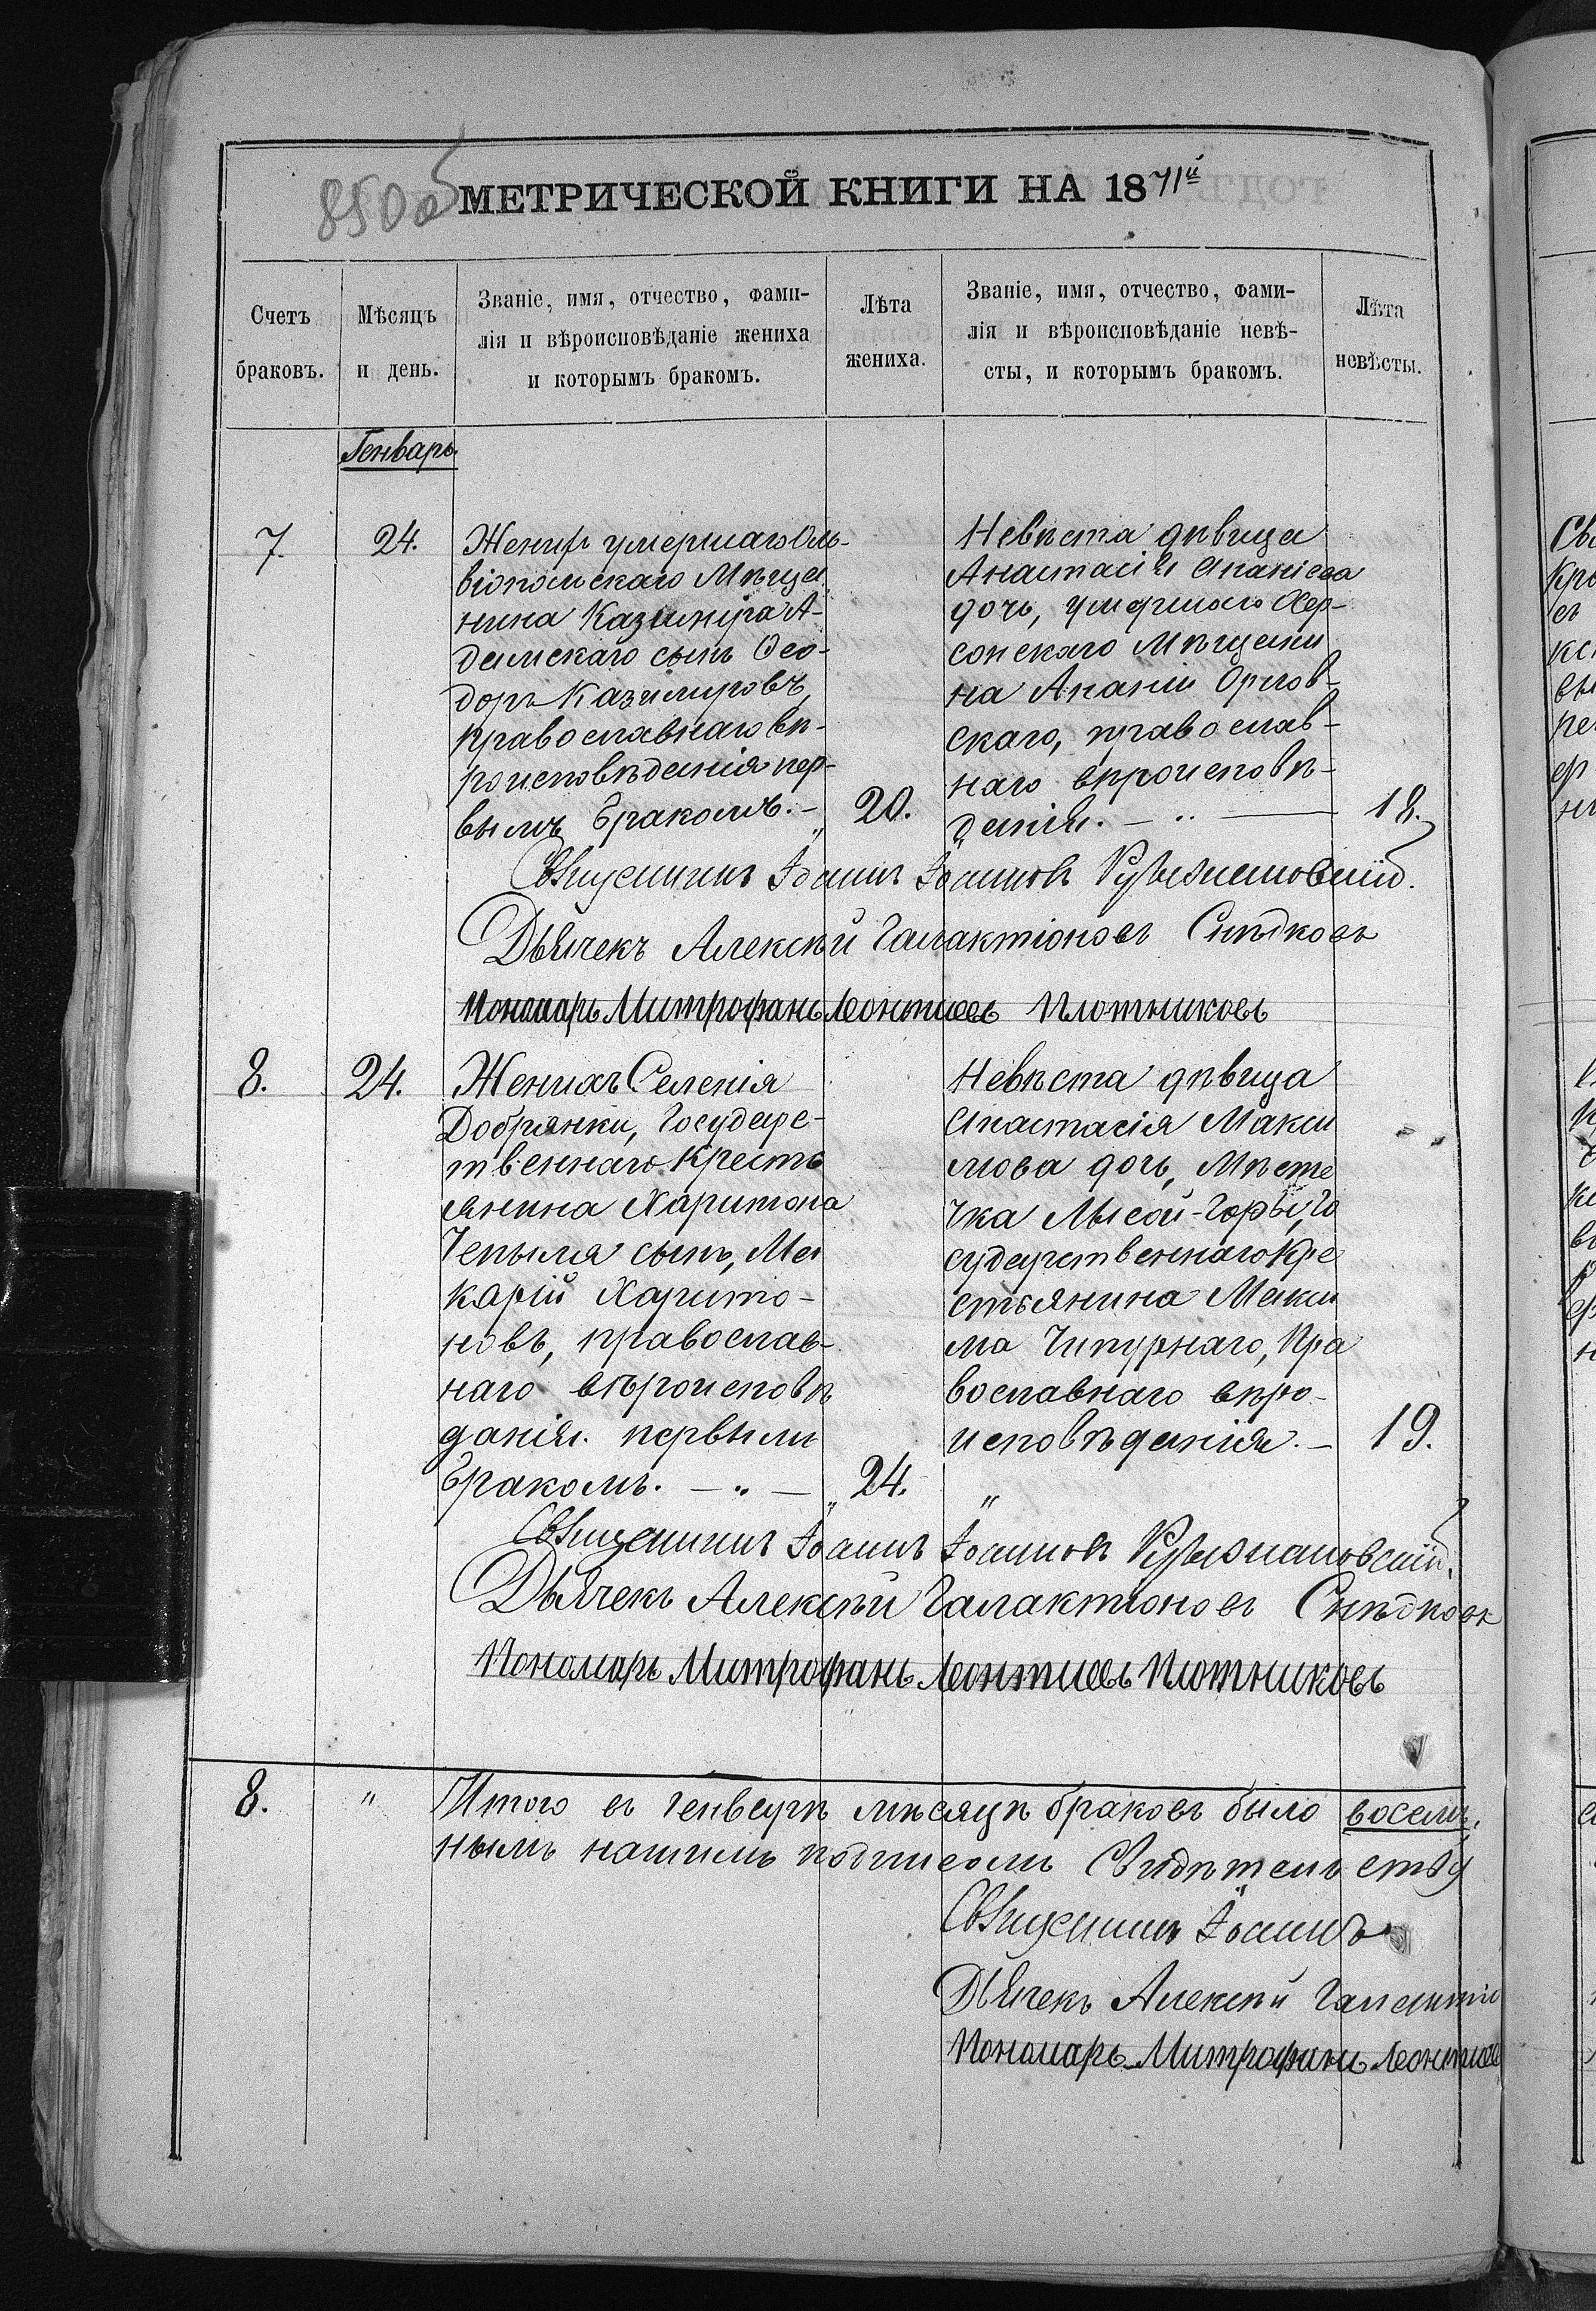 850об
МЕТРИЧЕСКОЙ КНИГИ НА 1871й
Счетъ браковъ.
Мѣсяцъ и день.
Званіе, имя, отчество, фами-
лія и вѣроисповѣданіе жениха
и которымъ бракомъ.
Лѣта жениха.
Званіе, имя, отчество, фами-
лія и вѣроисповѣданіе невѣ-
сты, и которымъ бракомъ.
Лѣта невѣсты.
Генварь.
7. 24.
Женихъ умершаго Оль-
віопольскаго Мѣща
нина Казиміра А-
дамскаго сынъ Ѳео-
доръ Казимировъ,
православнаго вѣ-
роисповѣданія пер-
вымъ бракомъ. —
20.
Невѣста дѣвица
Анастасія Ананіева
дочь, умершаго Хер-
сонскаго Мѣщани
на Ананіи Орлов-
скаго, православ-
наго вѣроисповѣ-
данія. — „ —
18.
Священникъ Іоаннъ Іоанновъ
Дьячекъ Алексѣй Галактіоновъ Снѣдковъ
Пономарь Митрофанъ Леонтіевъ Плотниковъ
8. 24.
Женихъ Селенія
Добрянки, Государс-
твеннаго кресть
янина Харитона
Чепыля сынъ, Ма
карій Харито-
новъ, православ-
наго вѣроисповѣ
данія. первымъ
бракомъ. — „ —
24.
Невѣста дѣвица
Анастасія Макси
мова дочь, Мѣсте
чка Лысой-Горы, Го
сударственнаго Кре
стьянина Макси
ма Чипурнаго, Пра
вославнаго вѣро-
исповѣданія. —
19.
Священникъ Іоаннъ Іоанновъ
Дьячекъ Алексѣй Галактіоновъ Снѣдковъ
Пономарь Митрофанъ Леонтіевъ Плотниковъ
8. „ Итого въ Генварѣ мѣсяцѣ браковъ было восемь,
нымъ нашимъ подписомъ Свидѣтельству
Священникъ Іоаннъ
Дьячекъ Алексѣй Галакті
Пономарь Митрофанъ Леонтіев